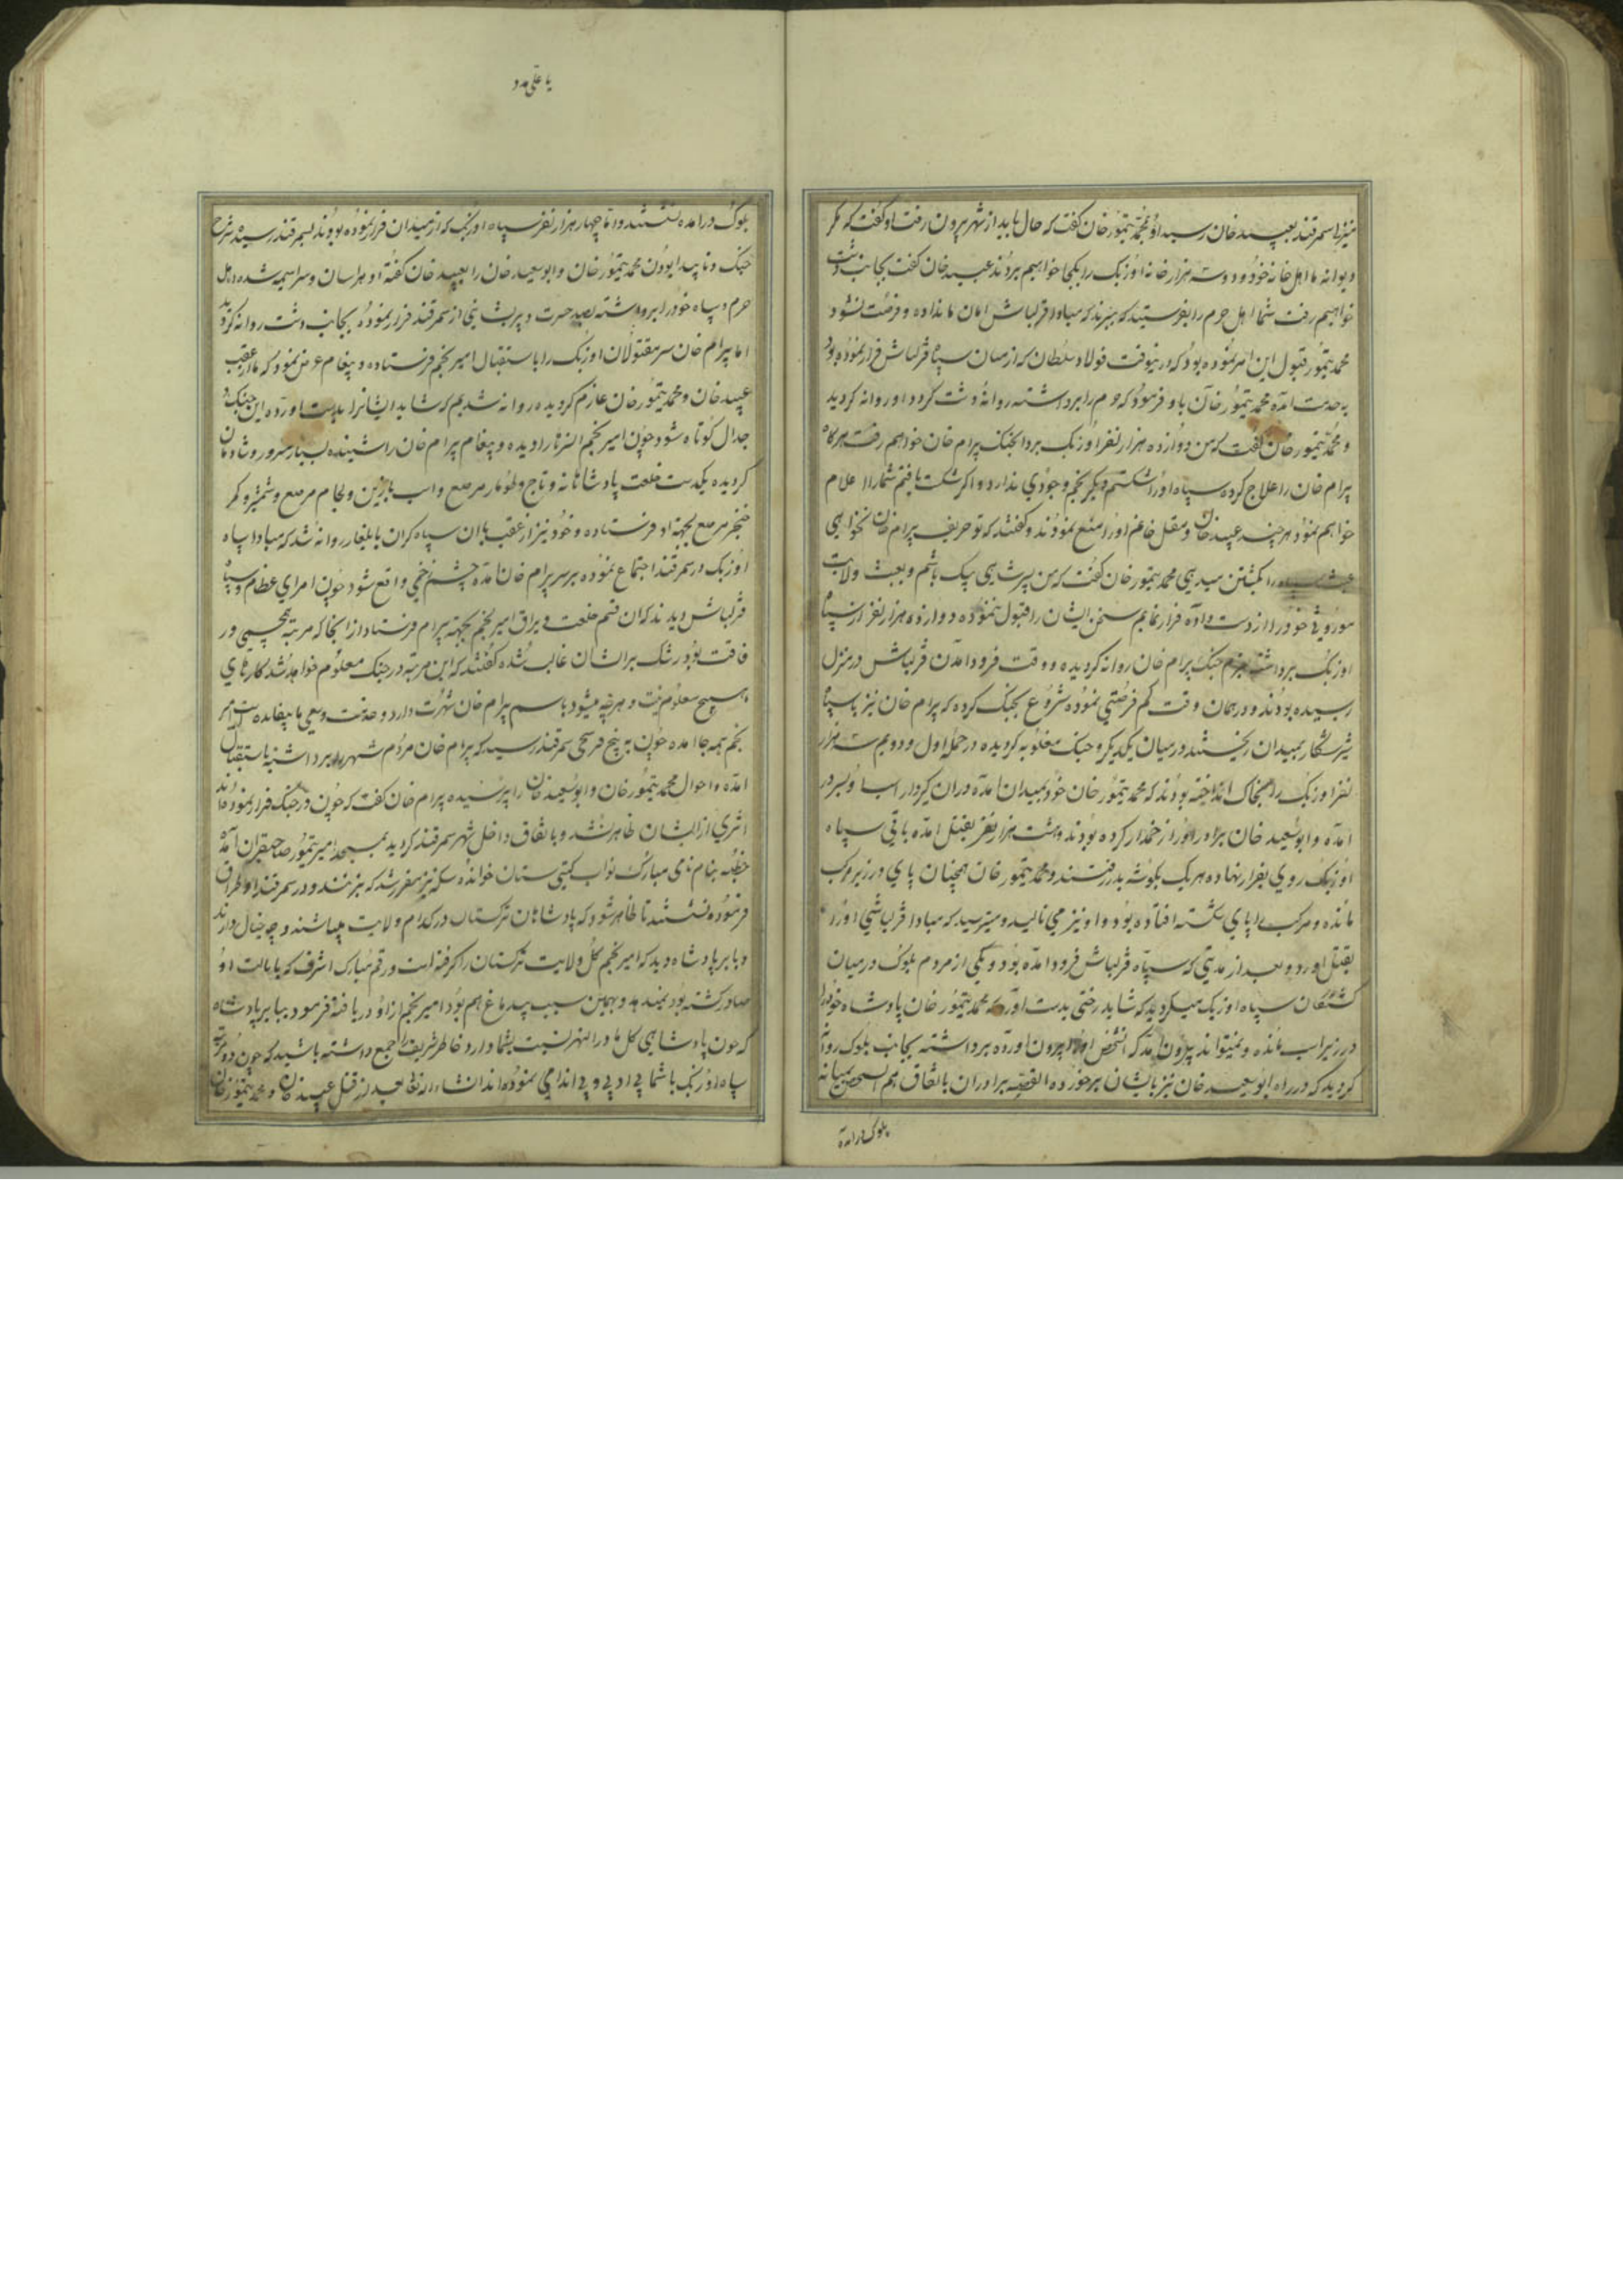 نیز به سمرقند بعبید خان رسید او بمحمد تیمور خان گفت که حال باید از شهر بیرون رفت او گفت که مگر
دیوانه ما اهل خانه خود و دوست هزار خانه اوزبک را بکجا خواهیم برد عبید خان گفت بجانب دشت
خواهیم رفت شما اهل حرم را بفرستید که ببرند که مبادا قزلباش امان ما نداده و فرصت نشود
محمد تیمور قبول این امر نموده بود که درینوقت فولاد سلطان که از میان سپاه قزلباش فرار نموده بود
بخدمت آمده محمد تیمور خان باو فرمود که حرم را برداشته روانه دشت کردد او روانه کردید
و محمد تیمور خان گفت که من دوازده هزار نفر اوزبک بردا بجنک بیرام خان خواهم رفت هرکاه
بیرام خان را علاج کرده سپاه او را شکستم دیکر نجم وجودی ندارد و اکر شکست یافتم شما را اعلام
خواهم نمود هرچند عبید خان و مغل خانم او را منع نمودند و گفتند که تو حریف بیرام خان نخواهی
را بکشتن میدهی محمد تیمور خان گفت که من پسر شیبی بیک باشم و بعبث ولایت
موروثی خود را از دست داده فرار نمایم سخن ایشان را قبول ننموده دوازده هزار نفر از سپاه
اوزبک برداشته بعزم جنک بیرام خان روانه کردیده و وقت فرود آمدن قزلباش در منزل
رسیده بودند و در همان وقت کم فرصتی نموده شروع بجنک کرده که بیرام خان نیز با سپاه
شیر شکار بمیدان ریختند در میان یکدیگر و جنک مغلوبه کردیده در حمله اول و دویم سه هزار
نفر اوزبک را بخاک انداخته بودند که محمد تیمور خان خود بمیدان آمده در ان کیرودار اسبا و بسر در
آمده و ابوسعید خان برادر او را زخمدار کرده بودند و هشت هزار نفر بقتل آمده باقی سپاه
اوزبک روی بفرار نهاده هریک بگوشه بدر رفتند و محمد تیمور خان همچنان پای در زیر مرکب
مانده و مرکب را پای شکسته افتاده بود و او نیز می نالید و میترسید که مبادا قزلباشی او را
بقتل اورد و بعد از مدتی که سپاه قزلباش فرود آمده بود و یکی از مردم بلوک در میان
کشتگان سپاه اوزبک میکردید که شاید رختی بدست آورد که محمد تیمور خان پادشاه خود را
در زیر اسب مانده و نمیتواند بیرون آمد که انشخص او را بیرون آورده برداشته بجانب بلوک روانه
کردید که در راه ابوسعید خان نیز بایشان برخورده القصه برادران باتفاق هم انشخص بمیانه
بلوک درآمده
یا علی مدد
بلوک درآمده نشستند و اما چهار هزار نفر سپاه اوزبک که از میدان فرار نموده بودند بسمرقند رسیده شرح
جنک و ناپیدا بودن محمد تیمور خان و ابوسعید خان را بعبید خان گفته او هراسان و سراسیمه شده اهل
حرم و سپاه خود را برداشته بصد حسرت و پریشانی از سمرقند فرار نموده بجانب دشت روانه کردید
اما بیرام خان سر مقتولان اوزبک را باستقبال امیر نجم فرستاده و پیغام عرض نمود که ما از عقب
عبید خان و محمد تیمور خان عازم کردیده روانه شدیم که شاید ایشانرا بدست اورده این جنک و
جدال کوتاه شود چون امیر نجم انسرها را دیده و پیغام بیرام خان را شنیده بسیار مسرور و شادمان
کردیده یکدست خلعت پادشاهانه و تاج و طومار مرصع و اسب با زین و لجام مرصع و شمشیر و کمر
خنجر مرصع بجهة او فرستاده و خود نیز از عقب با ان سپاه کران بایلغار روانه شد که مبادا سپاه
اوزبک در سمرقند اجتماع نموده بر سر بیرام خان آمده چشم زخمی واقع شود چون امرای عظام و سپاه
قزلباش دیدند که ان قسم خلعت و یراق امیر نجم بجهة بیرام فرستاد از انجا که مرتبه همچشمی در
فاقت بود رشک بر ایشان غالب شده گفتند که این مرتبه در جنک معلوم خواهد شد کارهای
هیچ معلوم نیست و هرچه میشود باسم بیرام خان شهرت دارد و خدمت و سعی ما بیفایده است امیر
نجم همه جا آمده چون به پنج فرسخی سمرقند رسید که بیرام خان مردم شهر را برداشته باستقبال
آمده و احوال محمد تیمور خان و ابوسعید خان را پرسیده بیرام خان گفت که چون در جنک فرار نمودند
اثری از ایشان ظاهر نشد و باتفاق داخل شهر سمرقند کردید بمسجد امیر تیمور صاحبقران آمده
خطبه بنام نامی مبارک نواب کیتی ستان خوانده سکه نیز مقرر شد که بزنند و در سمرقند و اطراق
فرموده نشستند تا ظاهر شود که پادشاهان ترکستان در کدام ولایت میباشند و چه خیال دارند
و بابر پادشاه دید که امیر نجم کل ولایت ترکستان را گرفته است و رقم مبارک اشرف که بایالت او
صادر کشته بود نمیدهد و بهمین سبب بیدماغ هم بود امیر نجم از او دریافته فرمود ببابر پادشاه
که چون پادشاهی کل ماوراءالنهر نسبت بشما دارد خاطر شریف را جمع داشته باشید که چون دو مرتبه
سپاه اوزبک با شما بی ادبی و بی اندامی نموده اند انشاءالله تعالی بعد از قتل عبید خان و محمد تیمور خان